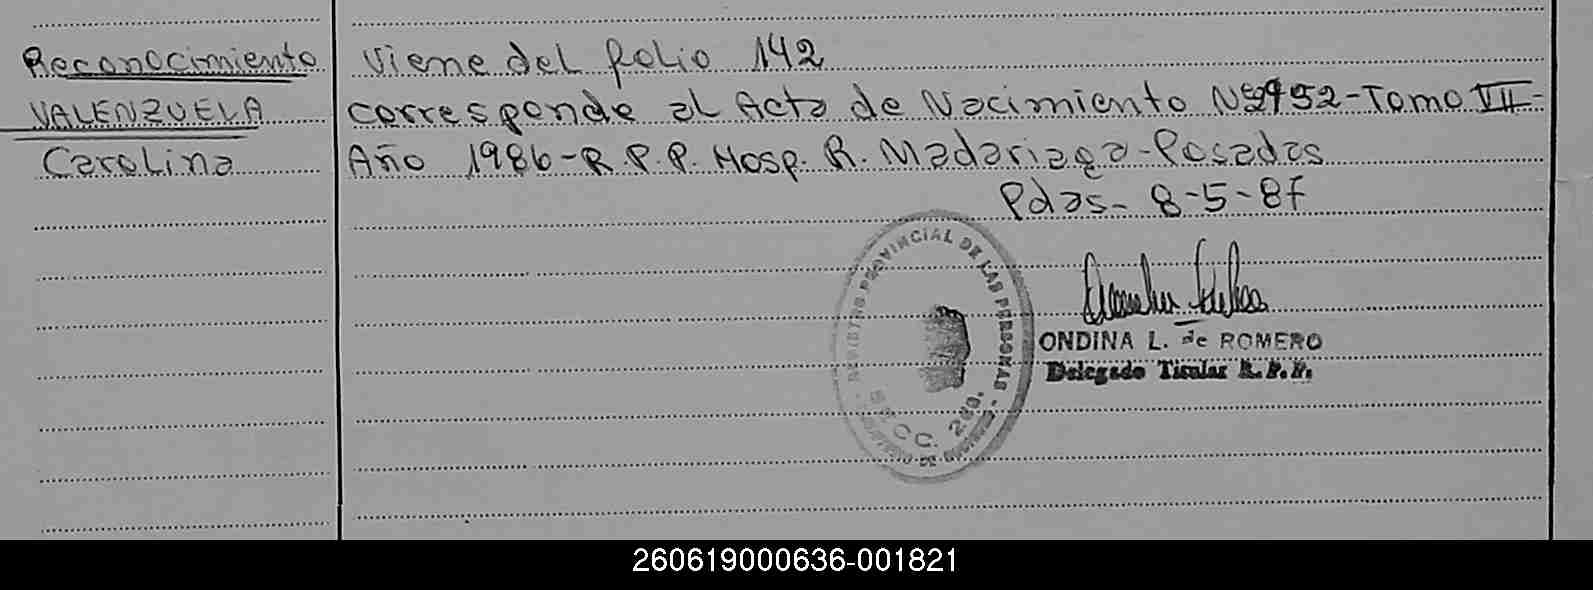 Reconocimiento
VALENZUELA
Carolina
Viene del folio 142
corresponde al Acta de Nacimiento Nº 2952-Tomo VII-
Año 1986-R.P.P. Hosp. R. Madariaga-Posadas
Pdas- 8-5-87
REGISTRO PROVINCIAL DE LAS PERSONAS
SECC. 289.
ONDINA L. de ROMERO
Delegado Titular R.P.P.
260619000636-001821